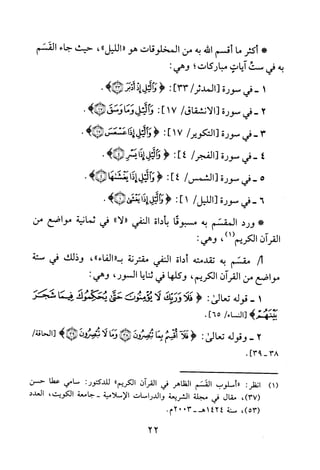 * أكثر ما أقسم الله به من المخلوقات هو «الليل»، حيث جاء القَسَم
به في ستِّ آياتٍ مباركات؛ وهي:
١ - في سورة [المدثر/ ٣٣]: ﴿وَٱلَّيْلِ إِذْ أَدْبَرَ ٣٣﴾.
٢ - في سورة [الانشقاق/ ١٧]: ﴿وَٱلَّيْلِ وَمَا وَسَقَ ١٧﴾.
٣ - في سورة [التكوير/ ١٧]: ﴿وَٱلَّيْلِ إِذَا عَسْعَسَ ١٧﴾.
٤ - في سورة [الفجر/ ٤]: ﴿وَٱلَّيْلِ إِذَا يَسْرِ ٤﴾.
٥ - في سورة [الشمس/ ٤]: ﴿وَٱلَّيْلِ إِذَا يَغْشَىٰهَا ٤﴾.
٦ - في سورة [الليل/ ١]: ﴿وَٱلَّيْلِ إِذَا يَغْشَىٰ ١﴾.
* ورد المقسَم به مسبوقًا بأداة النفي «لا» في ثمانية مواضع من
القرآن الكريم(١)، وهي:
أ/ مقسَم به تقدمته أداة النفي مقترنة بـ«الفاء»، وذلك في ستة
مواضع من القرآن الكريم، وكلها في ثنايا السور، وهي:
١ - قوله تعالىٰ: ﴿فَلَا وَرَبِّكَ لَا يُؤْمِنُونَ حَتَّىٰ يُحَكِّمُوكَ فِيمَا شَجَرَ
بَيْنَهُمْ﴾ [النساء/ ٦٥].
٢ - وقوله تعالىٰ: ﴿فَلَآ أُقْسِمُ بِمَا تُبْصِرُونَ ٣٨ وَمَا لَا تُبْصِرُونَ ٣٩﴾ [الحاقة/
٣٨ - ٣٩].
(١) انظر: «أسلوب القَسَم الظاهر في القرآن الكريم» للدكتور: سامي عطا حسن
(٣٧)، مقال في مجلة الشريعة والدراسات الإسلامية - جامعة الكويت، العدد
(٥٣)، سنة ١٤٢٤هـ - ٢٠٠٣م.
٢٢